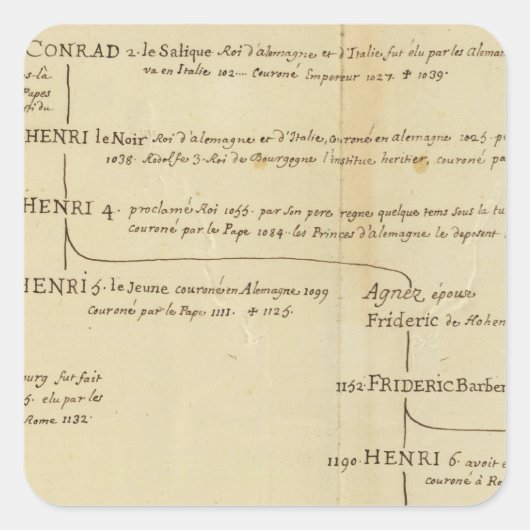 CONRAD 2. le Salique Roi d'alemagne et d'Italie, fut élu par les Aleman
va en Italie 102.... Couroné Empereur 1027. ✝ 1039.
s-là
Papes
ti du
HENRI le Noir Roi d'alemagne et d'Italie, couroné en alemagne 1025. p
1038. Rodolfe 3. Roi de Bourgogne l'institue heritier, couroné pa
HENRI 4. proclamé Roi 1055. par son pere regne quelque tems sous la tu
couroné par le Pape 1084. les Princes d'alemagne le deposent
HENRI 5. le Jeune couroné en Alemagne 1099
couroné par le Pape 1111. ✝ 1125.
Agnéz épouse
Frideric de Hohen
ourg fut fait
5. élu par les
Rome 1132.
1152. FRIDERIC Barber
1190. HENRI 6. avoit é
couroné à Ro